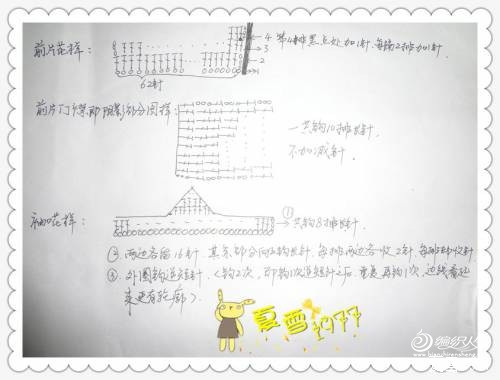 前片花样:
4 第4排黑点处加1针,每钩2排加1针.
3
2
62针
前片门襟即阴影部分图样:
一共钩10排长针,
不加减针.
袖花样:
① 一共钩8排长针.
② 两边各留16针,其余部分向上钩长针,每排两边各收2针,每排都收针
③ 外围钩逆短针.(钩2次,即钩1次逆短针之后,重复再钩1次,边缘看起
来更有轮廓)
夏雪1977
编织人生